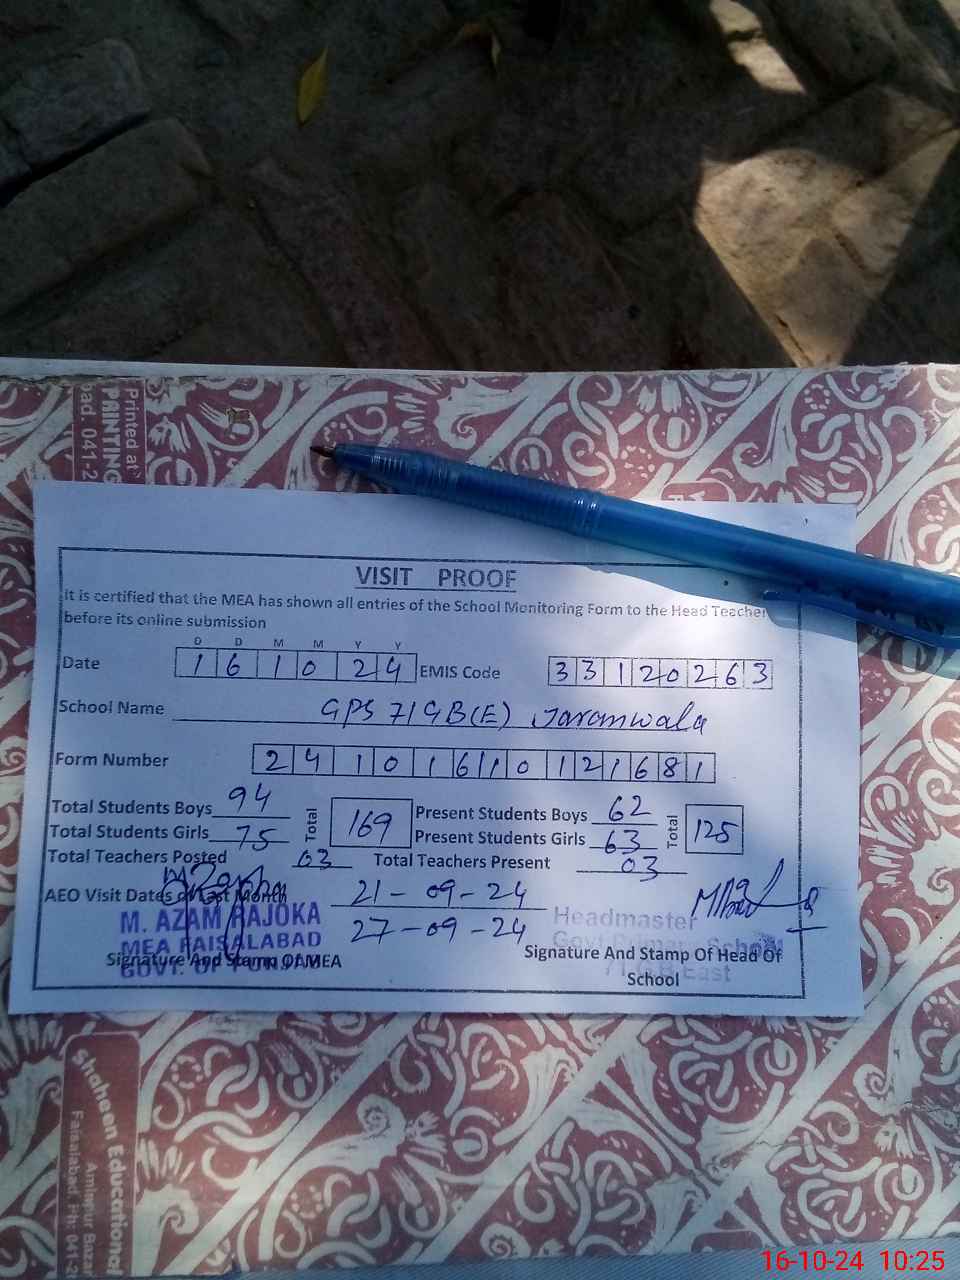 Printed at
PRINTING
bad. 041-2
VISIT PROOF
It is certified that the MEA has shown all entries of the School Monitoring Form to the Head Teacher
before its online submission
D D M M Y Y
Date 1 6 1 0 2 4 EMIS Code 3 3 1 2 0 2 6 3
School Name GPS 71 GB(E) Jaranwala
Form Number 2 4 1 0 1 6 1 0 1 2 1 6 8 1
Total Students Boys 94 Total 169 Present Students Boys 62 Total 125
Total Students Girls 75 Present Students Girls 63
Total Teachers Posted 03 Total Teachers Present 03
AEO Visit Dates of Last Month 21-09-24
27-09-24
M. AZAM RAJOKA
MEA FAISALABAD
GOVT. OF PUNJAB
Signature And Stamp Of MEA
Headmaster
Govt Primary School
71 GB East
Signature And Stamp Of Head Of
School
Shaheen Educational
Aminpur Bazar
Faisalabad. Ph: 041-2
16-10-24 10:25